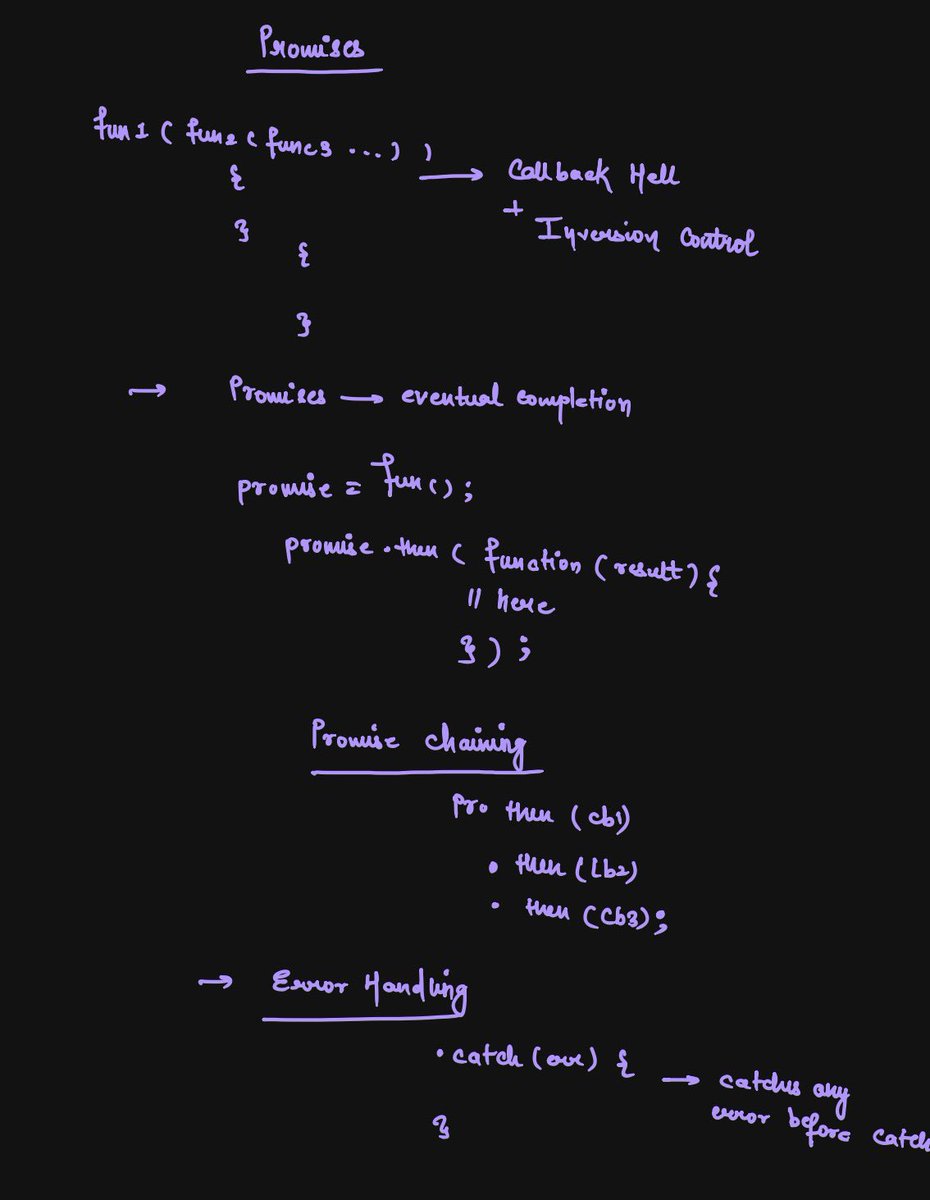 Promises
fun1 ( fun2 ( func3 ...) )
{
}
{
}
→ Callback Hell
+
Inversion Control
→ Promises → eventual completion
promise = fun();
promise.then ( function (result) {
// here
} ) ;
Promise chaining
Pro. then (cb1)
. then (cb2)
. then (cb3);
→ Error Handling
.catch (err) { → catches any
error before catch
}